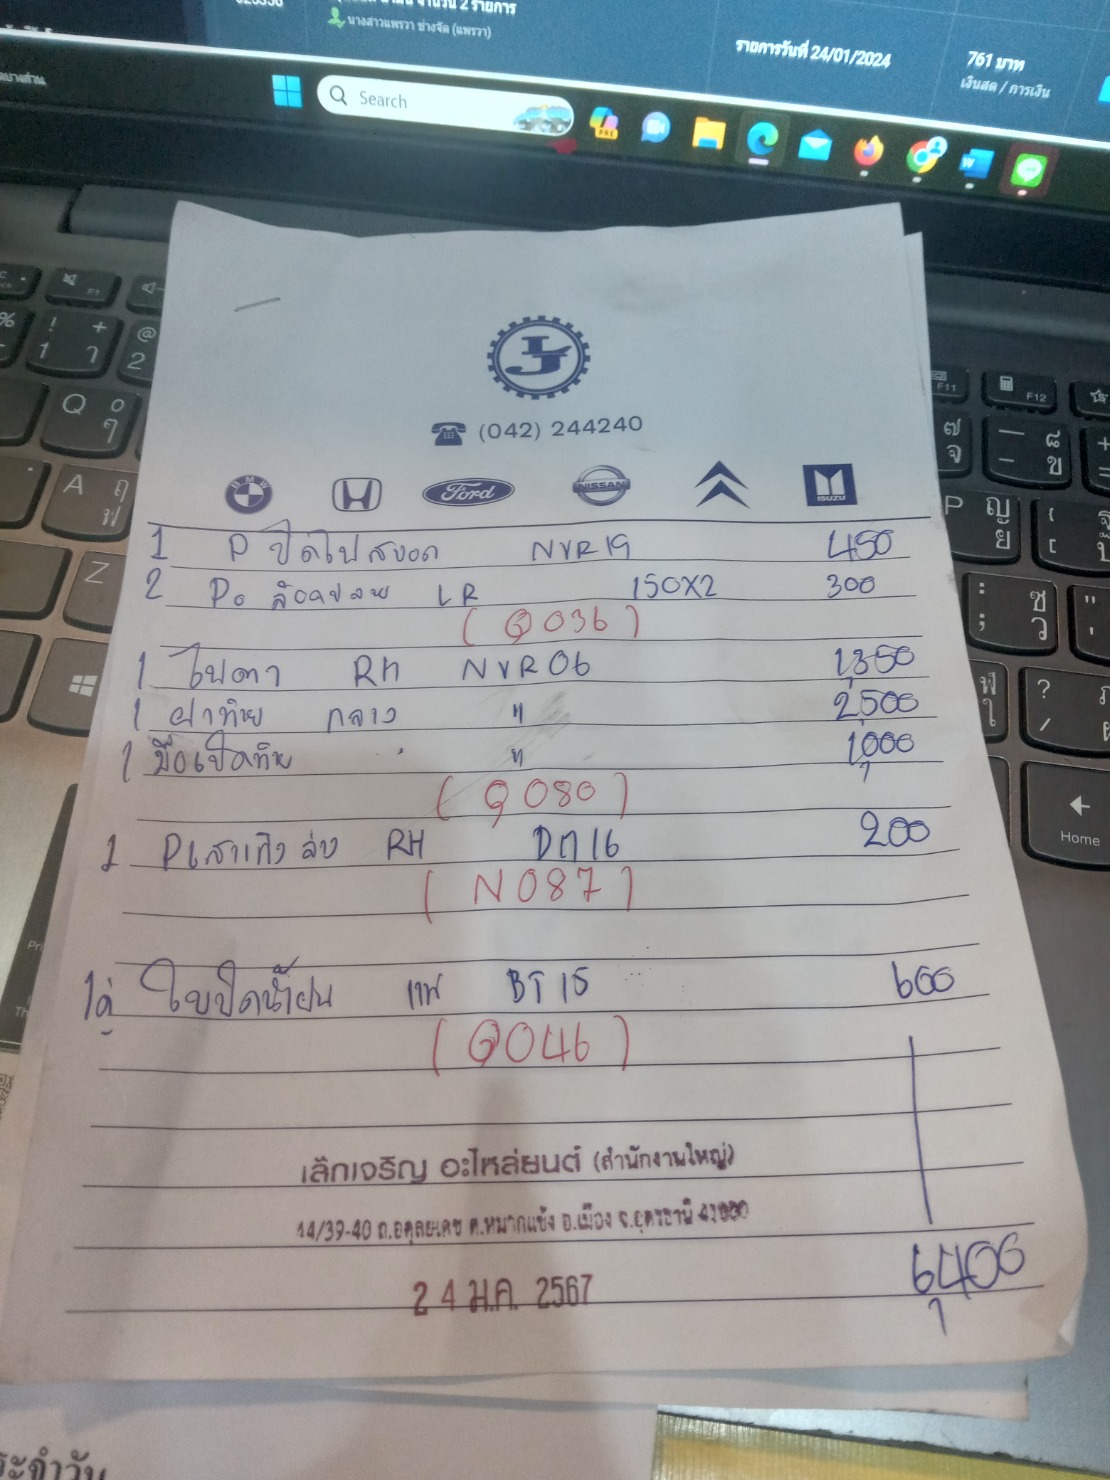 2 รายการ
นางสาวแพรวา ช่างจัด (แพรวา)
รายการวันที่ 24/01/2024
761 บาท
เงินสด / การเงิน
Search
(042) 244240
BMW
Ford
NISSAN
ISUZU
1 P ปิดไฟสปอต NVR19 450
2 Po ล้อคปลาย LR 150X2 300
(Q036)
1 ไฟตา RH NVR06 1,350
1 ฝาท้าย กลาง " 2,500
1 มือเปิดท้าย " 1,000
(Q080)
1 Pเสาเก๋ง ล่าง RH Dm16 200
(N087)
1คู่ ใบปัดน้ำฝน แท้ BT15 600
(Q046)
เล็กเจริญ อะไหล่ยนต์ (สำนักงานใหญ่)
14/39-40 ถ.อดุลยเดช ต.หมากแข้ง อ.เมือง จ.อุดรธานี 41000
24 ม.ค. 2567
6,400
ระจำวัน